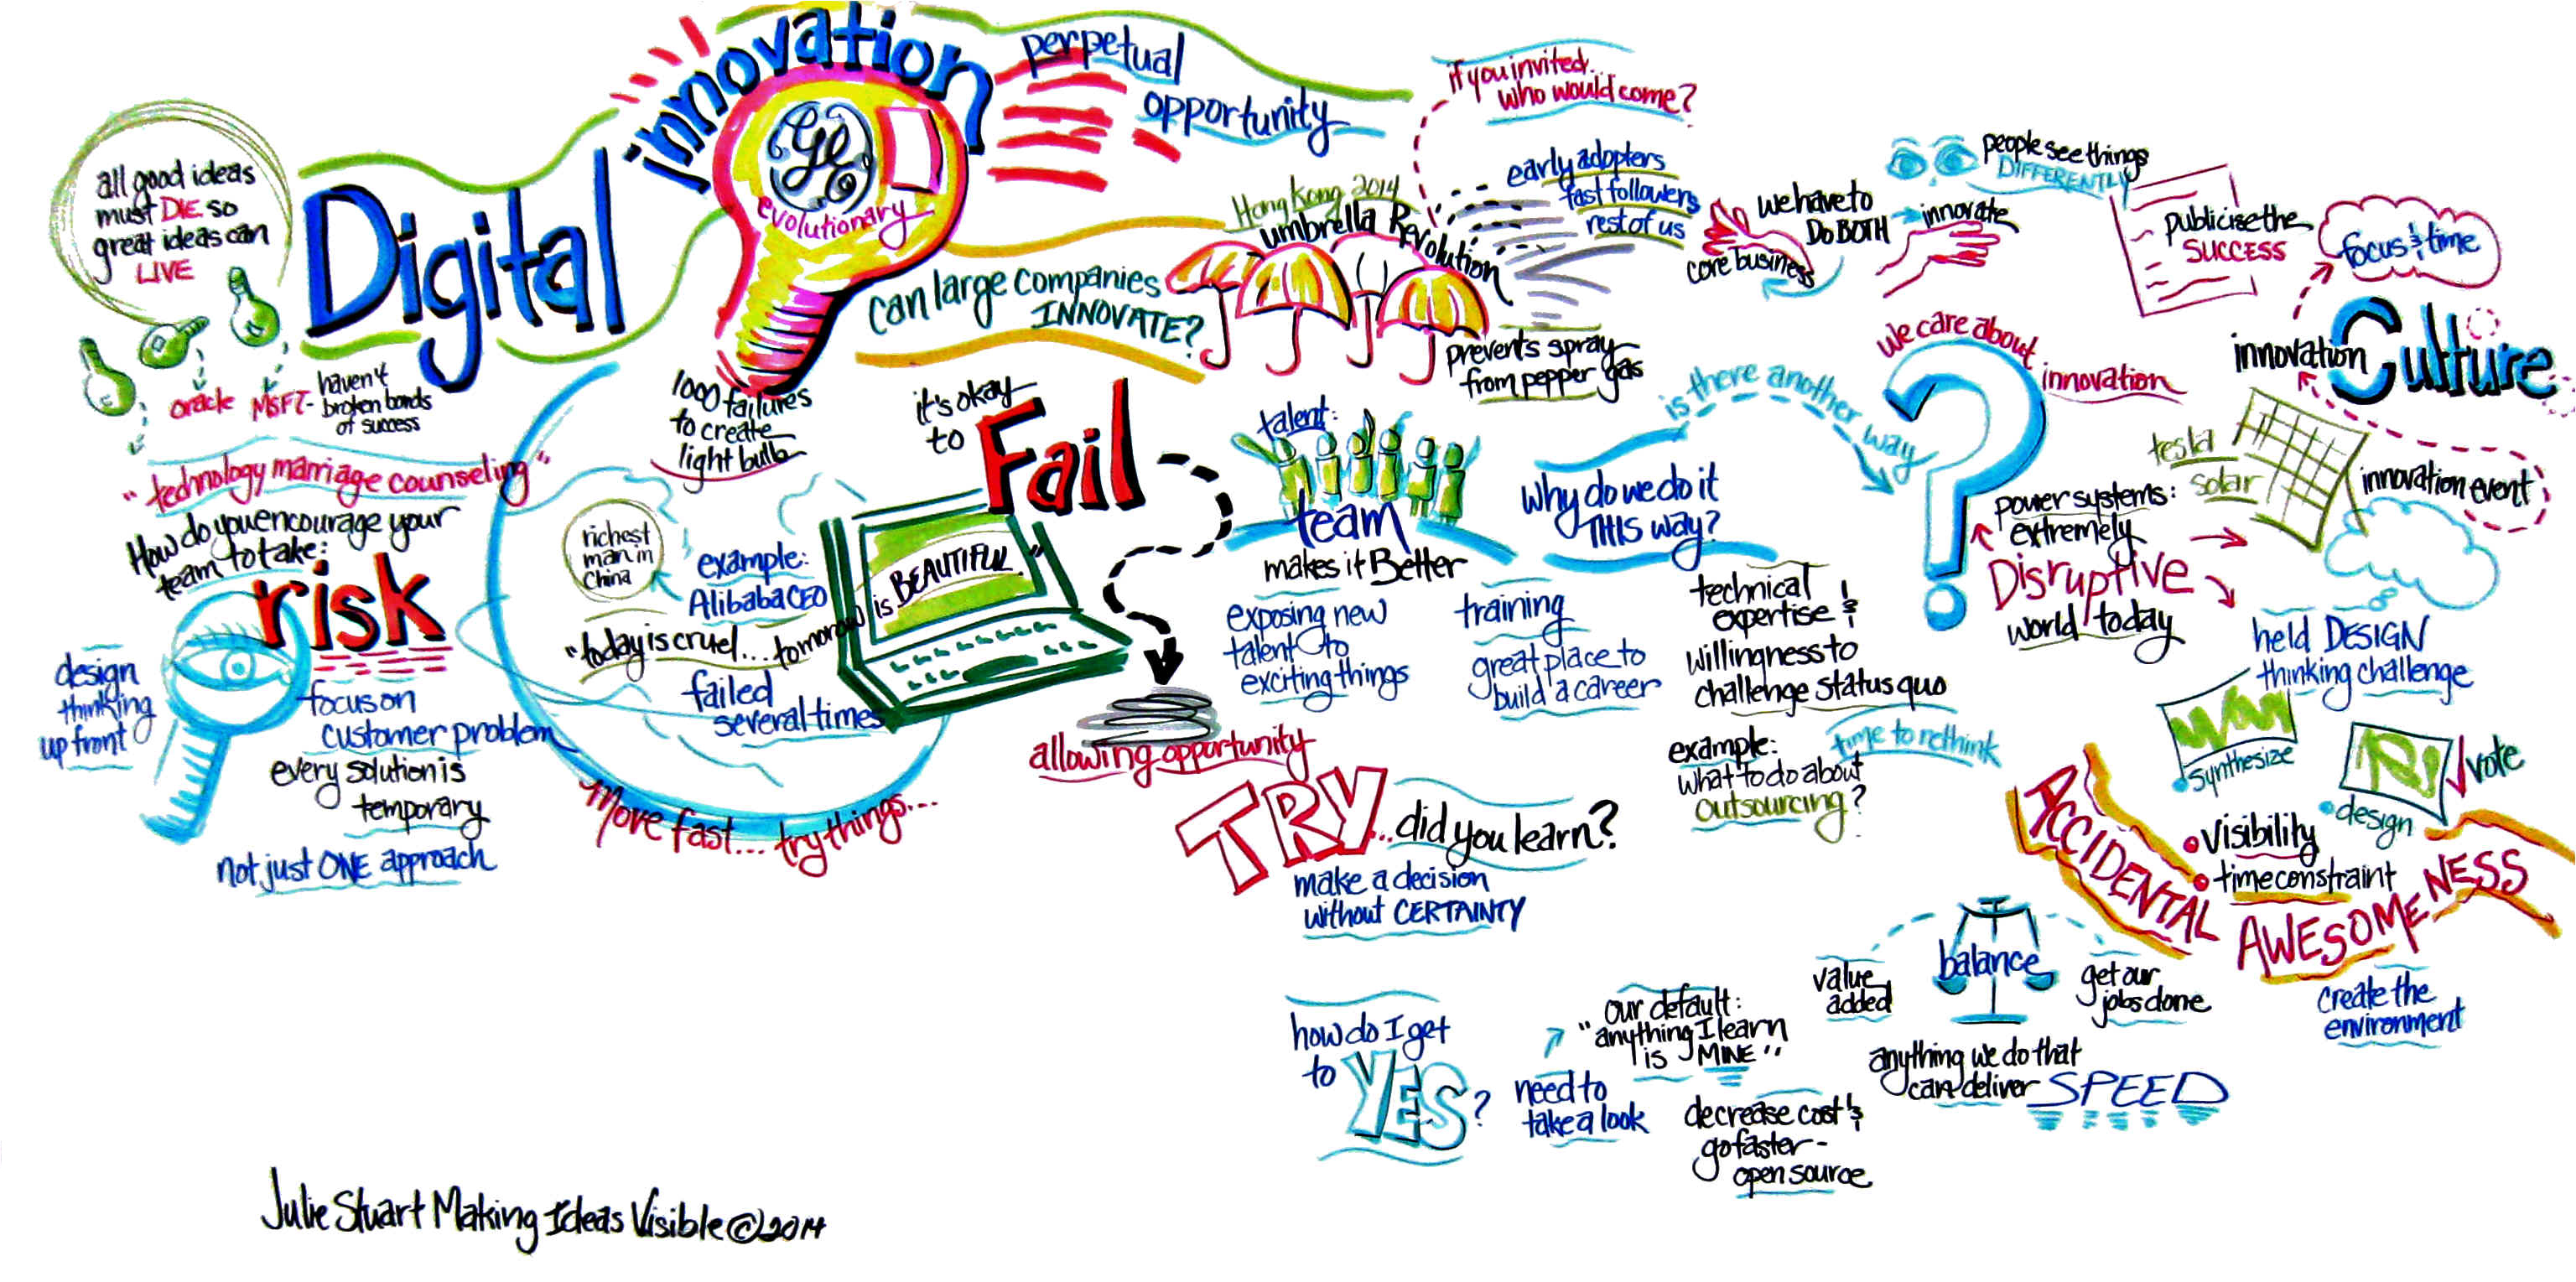 all good ideas
must DIE so
great ideas can
LIVE
oracle
MSFT-
haven't
broken bonds
of success
Digital
innovation
GE
evolutionary
perpetual
opportunity
can large companies
INNOVATE?
Hong Kong 2014
umbrella Revolution
prevents spray
from pepper gas
if you invited...
who would come?
early adopters
fast followers
rest of us
we have to
DO BOTH
innovate
core business
people see things
DIFFERENTLY
publicise the
SUCCESS
focus & time
innovation Culture
innovation event
"technology marriage counseling"
How do you encourage your
team to take:
risk
design
thinking
up front
focus on
customer problem
every solution is
temporary
not just ONE approach
1000 failures
to create
light bulb
it's okay
to
Fail
richest
man in
China
example:
Alibaba CEO
"today is cruel... tomorrow is BEAUTIFUL"
failed
several times
Move fast... try things...
allowing opportunity
TRY... did you learn?
make a decision
without CERTAINTY
talent:
team
makes it Better
exposing new
talent to
exciting things
training
great place to
build a career
why do we do it
THIS way?
is there another way
we care about
innovation
technical
expertise &
willingness to
challenge status quo
time to rethink
example:
what to do about
outsourcing?
power systems:
extremely
Disruptive
world today
tesla
solar
held DESIGN
thinking challenge
synthesize
design
vote
visibility
time constraint
ACCIDENTAL
AWESOMENESS
create the
environment
balance
value
added
get our
jobs done
anything we do that
can deliver SPEED
how do I get
to YES?
need to
take a look
our default:
"anything I learn
is MINE"
decrease cost &
go faster-
open source
Julie Stuart Making Ideas Visible © 2014